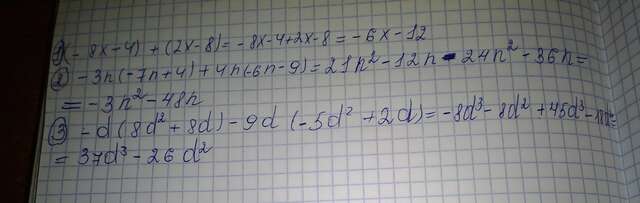 ① (-8x-4) + (2x-8) = -8x-4+2x-8 = -6x-12
② -3n(-7n+4)+4n(-6n-9) = 21n²-12n-24n²-36n =
= -3n²-48n
③ -d(8d²+8d)-9d(-5d²+2d) = -8d³-8d²+45d³-18d²=
= 37d³-26d²